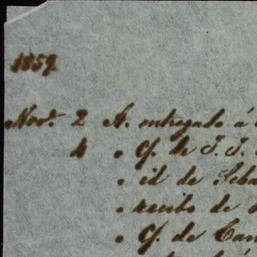 1859
Nov.e 2 A. entregado á
4 " G. de J. J.
" id de Seba
" recibo de
" G. de Can